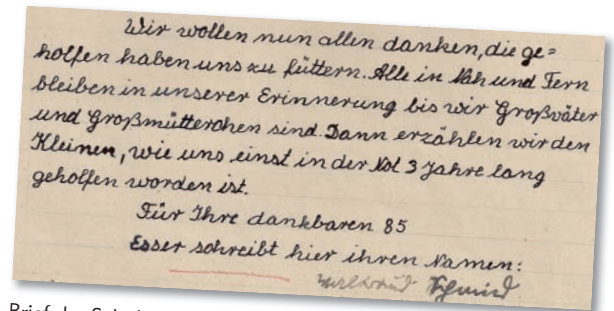 Wir wollen nun allen danken, die ge=
holfen haben uns zu füttern. Alle in Nah und Fern
bleiben in unserer Erinnerung bis wir Großväter
und Großmütterchen sind. Dann erzählen wir den
Kleinen, wie uns einst in der Not 3 Jahre lang
geholfen worden ist.
Für Ihre dankbaren 85
Esser schreibt hier ihren Namen:
Schmid
Brief der